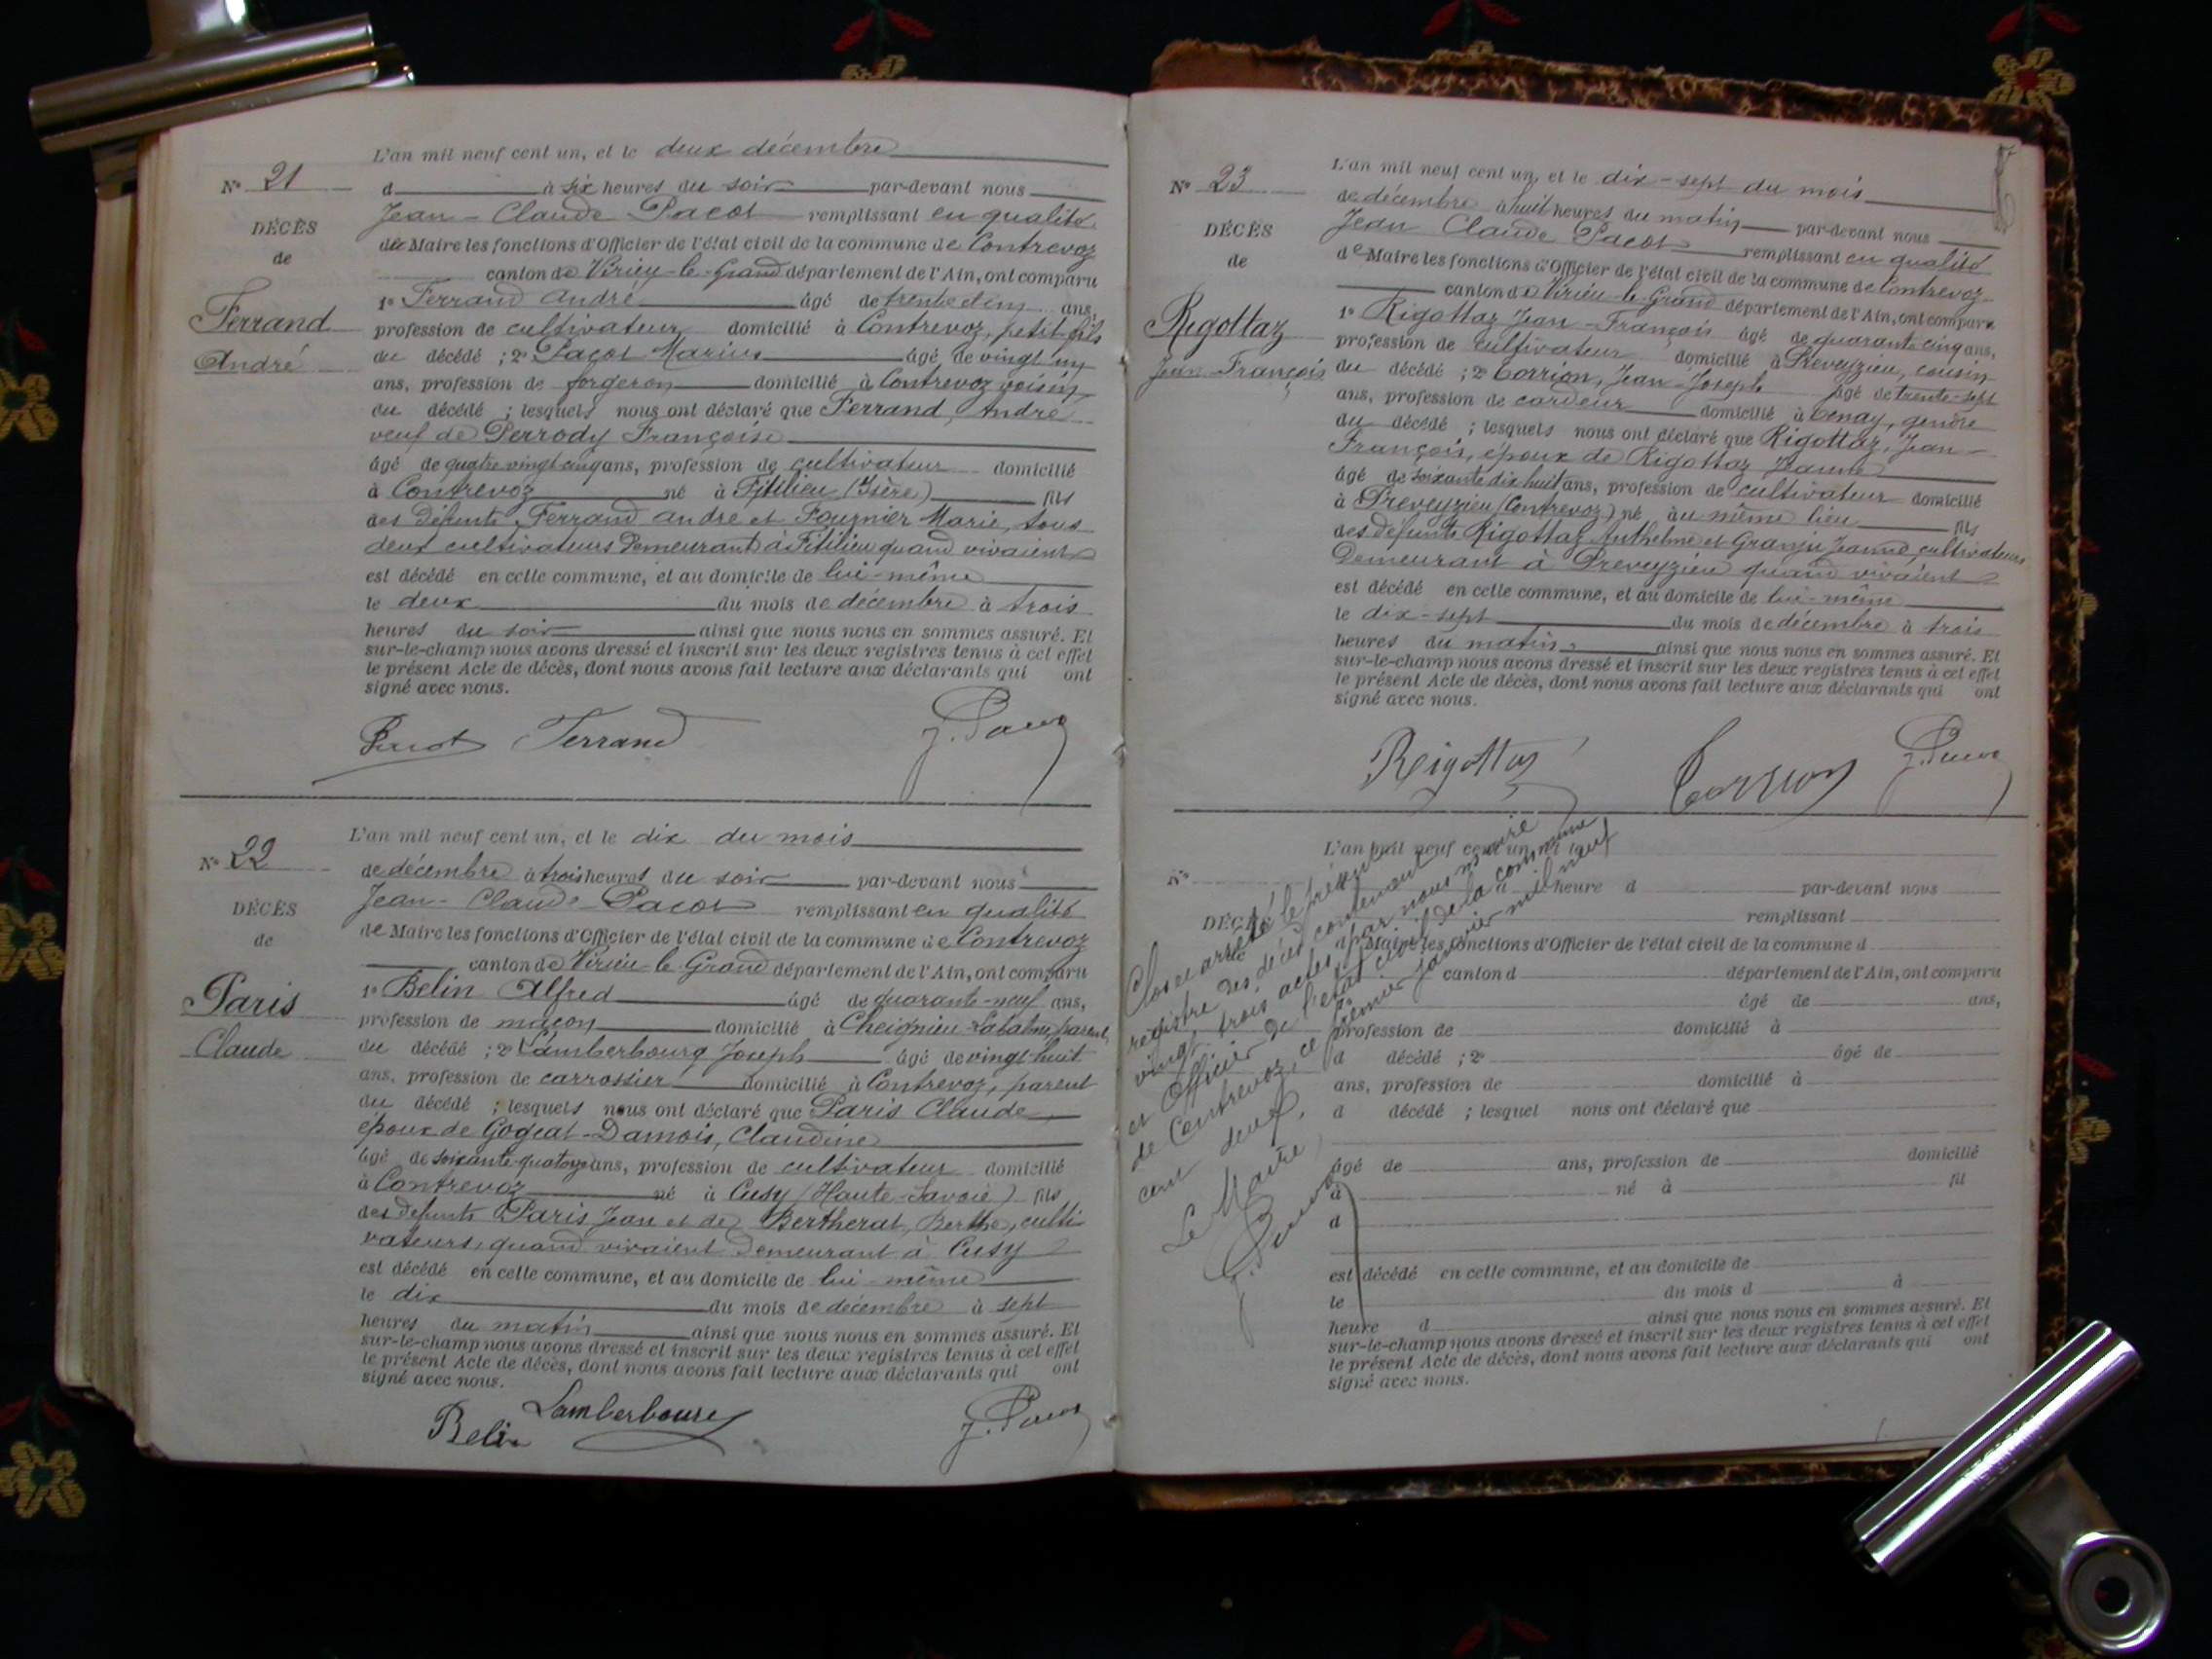 L'an mil neuf cent un, et le deux décembre
N° 21
d à six heures du soir par-devant nous
Jean-Claude Pacot remplissant en qualité
DÉCÈS
de Maire les fonctions d'Officier de l'état civil de la commune de Contrevoz
de
canton de Virieu-le-Grand département de l'Ain, ont comparu
1° Ferrand André âgé de trente et un ans,
Ferrand
profession de cultivateur domicilié à Contrevoz, petit-fils
André
du décédé ; 2° Pacot Marius âgé de vingt un
ans, profession de forgeron domicilié à Contrevoz voisin
du décédé ; lesquels nous ont déclaré que Ferrand, André
veuf de Perrody Françoise
âgé de quatre vingt cinq ans, profession de cultivateur domicilié
à Contrevoz né à Fitilieu (Isère) fils
des défunts Ferrand André et Fournier Marie, tous
deux cultivateurs demeurant à Fitilieu quand vivaient
est décédé en cette commune, et au domicile de lui-même
le deux du mois de décembre à trois
heures du soir ainsi que nous nous en sommes assuré. Et
sur-le-champ nous avons dressé et inscrit sur les deux registres tenus à cet effet
le présent Acte de décès, dont nous avons fait lecture aux déclarants qui ont
signé avec nous.
Pacot Ferrand J. Pacot
L'an mil neuf cent un, et le dix du mois
N° 22
de décembre à trois heures du soir par-devant nous
Jean-Claude Pacot remplissant en qualité
DÉCÈS
de Maire les fonctions d'Officier de l'état civil de la commune de Contrevoz
de
canton de Virieu-le-Grand département de l'Ain, ont comparu
1° Belin Alfred âgé de quarante-neuf ans,
Paris
profession de maçon domicilié à Cheignieu-Labalme, parent
Claude
du décédé ; 2° Lamberbourg Joseph âgé de vingt-huit
ans, profession de carrossier domicilié à Contrevoz, parent
du décédé ; lesquels nous ont déclaré que Paris Claude
époux de Gogeat-Damois, Claudine
âgé de soixante-quatorze ans, profession de cultivateur domicilié
à Contrevoz né à Cusy (Haute-Savoie) fils
des défunts Paris Jean et de Bertherat, Berthe, culti
vateurs, quand vivaient demeurant à Cusy
est décédé en cette commune, et au domicile de lui-même
le dix du mois de décembre à sept
heures du matin ainsi que nous nous en sommes assuré. Et
sur-le-champ nous avons dressé et inscrit sur les deux registres tenus à cet effet
le présent Acte de décès, dont nous avons fait lecture aux déclarants qui ont
signé avec nous.
Belin Lamberbourg J. Pacot
L'an mil neuf cent un, et le dix-sept du mois
N° 23
de décembre à huit heures du matin par-devant nous
Jean Claude Pacot remplissant en qualité
DÉCÈS
de Maire les fonctions d'Officier de l'état civil de la commune de Contrevoz
de
canton de Virieu-le-Grand département de l'Ain, ont comparu
1° Rigottaz Jean-François âgé de quarante cinq ans,
Rigottaz
profession de cultivateur domicilié à Preveyzieu, cousin
Jean-François
du décédé ; 2° Corrion, Jean-Joseph âgé de trente-sept
ans, profession de cardeur domicilié à Tenay, gendre
du décédé ; lesquels nous ont déclaré que Rigottaz, Jean-
François, époux de Rigottaz Jeanne
âgé de soixante dix huit ans, profession de cultivateur domicilié
à Preveyzieu (Contrevoz) né au même lieu fils
des défunts Rigottaz Anthelme et Granju Jeanne, cultivateurs
demeurant à Preveyzieu quand vivaient
est décédé en cette commune, et au domicile de lui-même
le dix-sept du mois de décembre à trois
heures du matin ainsi que nous nous en sommes assuré. Et
sur-le-champ nous avons dressé et inscrit sur les deux registres tenus à cet effet
le présent Acte de décès, dont nous avons fait lecture aux déclarants qui ont
signé avec nous.
Rigottaz Corrion J. Pacot
L'an mil neuf cent un, et le
N°
à heure d par-devant nous
DÉCÈS
remplissant
de
Maire les fonctions d'Officier de l'état civil de la commune d
canton d département de l'Ain, ont comparu
âgé de ans,
profession de domicilié à
d décédé ; 2° âgé de
ans, profession de domicilié à
d décédé ; lesquel nous ont déclaré que
âgé de ans, profession de domicilié
à né à fil
d
est décédé en cette commune, et au domicile de
le du mois d à
heure d ainsi que nous nous en sommes assuré. Et
sur-le-champ nous avons dressé et inscrit sur les deux registres tenus à cet effet
le présent Acte de décès, dont nous avons fait lecture aux déclarants qui ont
signé avec nous.
Clos et arrêté le présent
registre des décès contenant
vingt trois actes, par nous maire
et Officier de l'état civil de la commune
de Contrevoz, ce premier janvier mil neuf
cent deux.
Le Maire,
J. Pacot